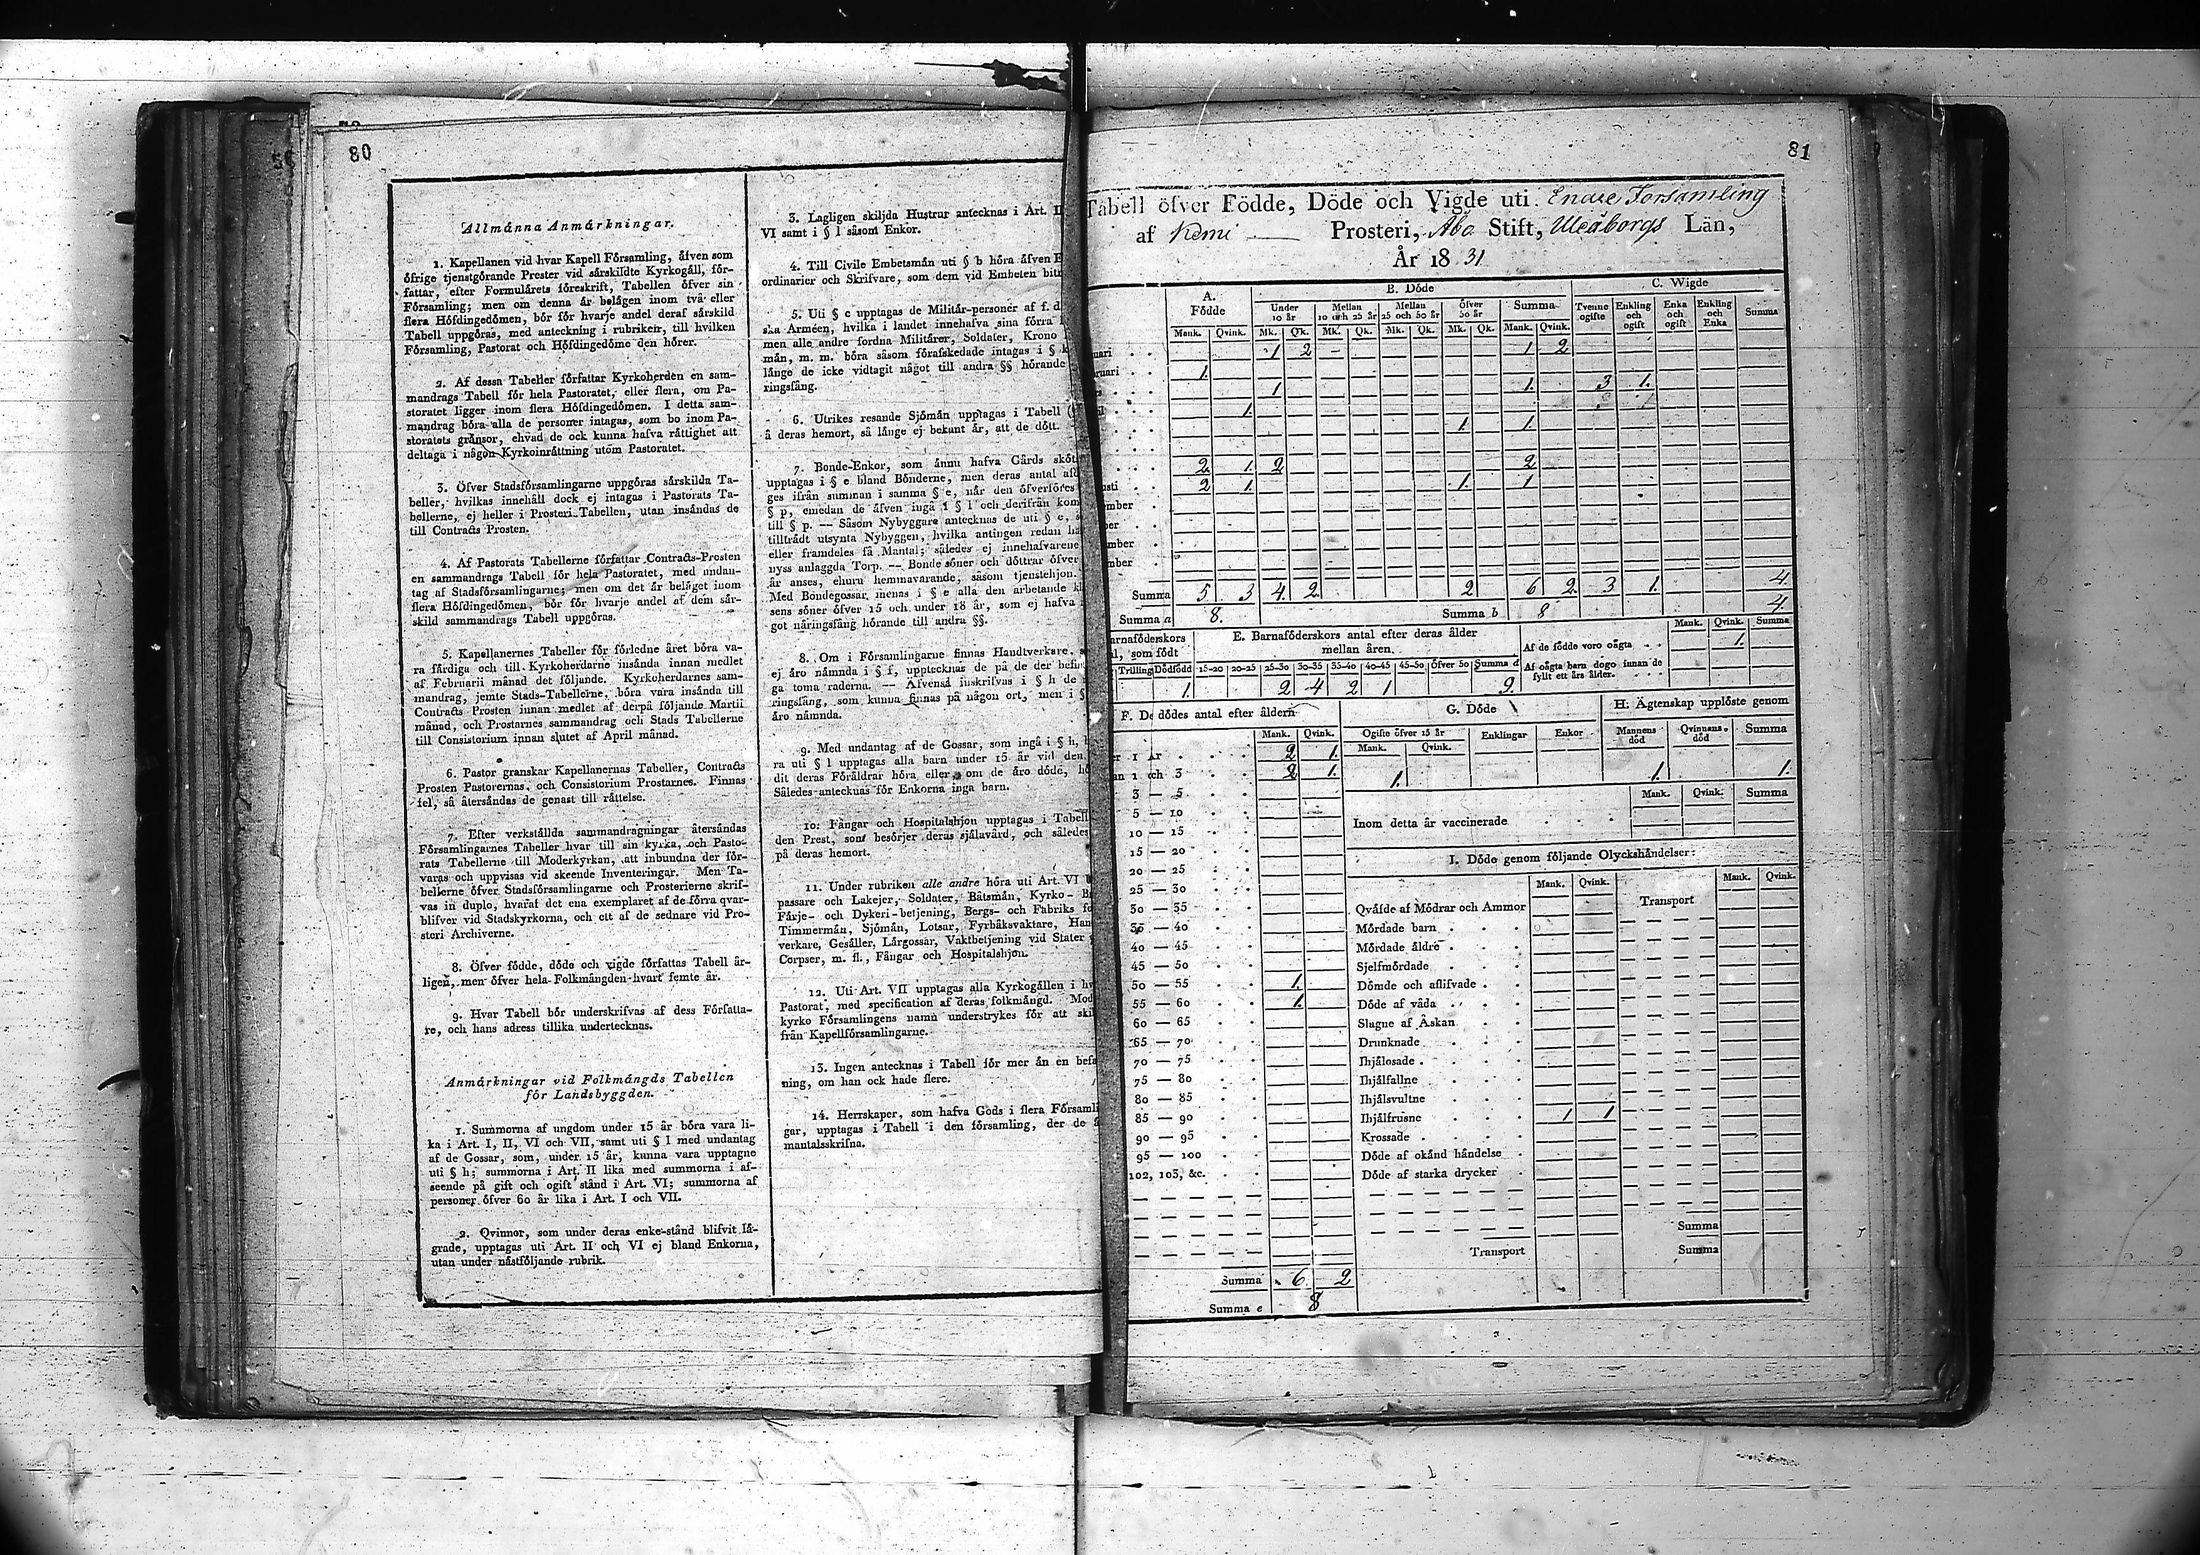 80
Allmänna Anmärkningar.
1. Kapellanen vid hvar Kapell Församling, äfven som
öfrige tjenstgörande Prester vid särskildte Kyrkogäll, för-
fattar, efter Formulärets föreskrift, Tabellen öfver sin
Församling; men om denna är belägen inom två eller
flera Höfdingedömen, bör för hvarje andel deraf särskild
Tabell uppgöras, med anteckning i rubriken, till hvilken
Församling, Pastorat och Höfdingedöme den hörer.
2. Af dessa Tabeller författar Kyrkoherden en sam-
mandrags Tabell för hela Pastoratet, eller flera, om Pa-
storatet ligger inom flera Höfdingedömen. I detta sam-
mandrag böra alla de personer intagas, som bo inom Pa-
storatets gränsor, ehvad de ock kunna hafva rättighet att
deltaga i någon Kyrkoinrättning utom Pastoratet.
3. Öfver Stadsförsamlingarne uppgöras särskilda Ta-
beller, hvilkas innehåll dock ej intagas i Pastorats Ta-
bellerne, ej heller i Prosteri-Tabellen, utan insändas de
till Contracts Prosten.
4. Af Pastorats Tabellerne författar Contracts-Prosten
en sammandrags Tabell för hela Pastoratet, med undan-
tag af Stadsförsamlingarne; men om det är beläget inom
flera Höfdingedömen, bör för hvarje andel af dem sär-
skild sammandrags Tabell uppgöras.
5. Kapellanernes Tabeller för förledne året böra va-
ra färdiga och till Kyrkoherdarne insända innan medlet
af Februarii månad det följande. Kyrkoherdarnes sam-
mandrag, jemte Stads-Tabellerne, böra vara insända till
Contracts Prosten innan medlet af derpå följande Martii
månad, och Prostarnes sammandrag och Stads Tabellerne
till Consistorium innan slutet af April månad.
6. Pastor granskar Kapellanernas Tabeller, Contracts
Prosten Pastorernas, och Consistorium Prostarnes. Finnas
fel, så återsändas de genast till rättelse.
7. Efter verkställda sammandragningar återsändas
Församlingarnes Tabeller hvar till sin kyrka, och Pasto-
rats Tabellerne till Moderkyrkan, att inbundna der för-
varas och uppvisas vid skeende Inventeringar. Men Ta-
bellerne öfver Stadsförsamlingarne och Prosterierne skrif-
vas in duplo, hvaraf det ena exemplaret af de förra qvar-
blifver vid Stadskyrkorna, och ett af de sednare vid Pro-
steri Archiverne.
8. Öfver födde, döde och vigde författas Tabell år-
ligen, men öfver hela Folkmängden hvart femte år.
9. Hvar Tabell bör underskrifvas af dess Författa-
re, och hans adress tillika undertecknas.
Anmärkningar vid Folkmängds Tabellen
för Landsbyggden.
1. Summorna af ungdom under 15 år böra vara li-
ka i Art. I, II, VI och VII, samt uti § l med undantag
af de Gossar, som, under 15 år, kunna vara upptagne
uti § h; summorna i Art. II lika med summorna i af-
seende på gift och ogift stånd i Art. VI; summorna af
personer öfver 60 år lika i Art. I och VII.
2. Qvinnor, som under deras enke-stånd blifvit lä-
grade, upptagas uti Art. II och VI ej bland Enkorna,
utan under nästföljande rubrik.
3. Lagligen skiljda Hustrur antecknas i Art. II
VI samt i § l såsom Enkor.
4. Till Civile Embetsmän uti § b höra äfven E
ordinarier och Skrifvare, som dem vid Embeten bitr
5. Uti § c upptagas de Militär-personer af f. d.
ska Arméen, hvilka i landet innehafva sina förra
men alle andre fordna Militärer, Soldater, Krono
män, m. m. böra såsom förafskedade intagas i § k
länge de icke vidtagit något till andra §§ hörande
ringsfång.
6. Utrikes resande Sjömän upptagas i Tabell
å deras hemort, så länge ej bekant är, att de dött.
7. Bonde-Enkor, som ännu hafva Gårds sköt
upptagas i § e bland Bönderne, men deras antal afd
ges ifrån summan i samma § e, når den öfverföres
§ p, emedan de äfven ingå i § l och derifrån kom
till § p. — Såsom Nybyggare antecknas de uti § e, s
tillträdt utsynta Nybyggen, hvilka antingen redan ha
eller framdeles få Mantal; således ej innehafvarene
nyss anlaggda Torp. — Bonde söner och döttrar öfver
år anses, ehuru hemmavarande, såsom tjenstehjon.
Med Bondegossar menas i § e alla den arbetande kl
sens söner öfver 15 och under 18 år, som ej hafva
got näringsfång hörande till andra §§.
8. Om i Församlingarne finnas Handtverkare, s
ej äro nämnda i § f, upptecknas de på de der befin
ga toma raderna. — Äfvenså inskrifvas i § h de
ringsfång, som kunna finnas på någon ort, men i §
äro nämnda.
9. Med undantag af de Gossar, som ingå i § h,
ra uti § l upptagas alla barn under 15 år vid den
dit deras Föräldrar höra, eller, om de äro döde, hö
Således antecknas för Enkorna inga barn.
10. Fångar och Hospitalshjon upptagas i Tabell
den Prest, som besörjer deras själavård, och således
på deras hemort.
11. Under rubriken alle andre höra uti Art. VI
passare och Lakejer, Soldater, Båtsmän, Kyrko- B
Färje- och Dykeri-betjening, Bergs- och Fabriks fo
Timmermän, Sjömän, Lotsar, Fyrbåksvaktare, Han
verkare, Gesäller, Lärgossar, Vaktbetjening vid Stater
Corpser, m. fl., Fångar och Hospitalshjon.
12. Uti Art. VII upptagas alla Kyrkogällen i hv
Pastorat, med specification af deras folkmängd. Mod
kyrko Församlingens namn understrykes för att skil
från Kapellförsamlingarne.
13. Ingen antecknas i Tabell för mer än en befa
ning, om han ock hade flere.
14. Herrskaper, som hafva Gods i flera Församli
gar, upptagas i Tabell i den församling, der de ä
mantalsskrifna.
81
Tabell öfver Födde, Döde och Vigde uti Enare Församling
af Kemi Prosteri, Åbo Stift, Uleåborgs Län,
År 1831
A. Födde B. Döde C. Wigde
Under 10 år Mellan 10 och 25 år Mellan 25 och 50 år Öfver 50 år Summa Tvenne ogifte Enkling och ogift Enka och ogift Enkling och Enka Summa
Mank. Qvink. Mk. Qk. Mk. Qk. Mk. Qk. Mk. Qk. Mank. Qvink.
uari 1 2 1 2
ruari 1.
rs 1 1. 3 1.
il 1.
1. 1.
2 1. 2 2
usti 2 1. 1. 1
mber
ber
mber
mber
Summa 5 3 4 2 2 6 2 3 1. 4
Summa a 8. Summa b 8 4.
arnaföderskors
l, som födt
E. Barnaföderskors antal efter deras ålder
mellan åren.
Trilling Dödfödd 15-20 20-25 25-30 30-35 35-40 40-45 45-50 Öfver 50 Summa d
1. 2 4 2 1 9.
Mank. Qvink. Summa
Af de födde voro oägta 1.
Af oägta barn dogo innan de
fyllt ett års ålder.
F. De dödes antal efter åldern
Mank. Qvink.
er 1 år 2 1.
an 1 och 3 2 1.
3 — 5
5 — 10
10 — 15
15 — 20
20 — 25
25 — 30
30 — 35
35 — 40
40 — 45
45 — 50
50 — 55 1.
55 — 60 1.
60 — 65
65 — 70
70 — 75
75 — 80
80 — 85
85 — 90
90 — 95
95 — 100
102, 103, &c.
Summa 6. 2
Summa e 8
G. Döde
Ogifte öfver 15 år Enklingar Enkor
Mank. Qvink.
1.
H. Ägtenskap upplöste genom
Mannens död Qvinnans död Summa
1. 1.
Mank. Qvink. Summa
Inom detta år vaccinerade
I. Döde genom följande Olyckshändelser:
Mank. Qvink. Transport Mank. Qvink.
Qväfde af Mödrar och Ammor
Mördade barn
Mördade äldre
Sjelfmördade
Dömde och aflifvade
Döde af våda
Slagne af Åskan
Drunknade
Ihjälosade
Ihjälfallne
Ihjälsvultne
Ihjälfrusne 1 1
Krossade
Döde af okänd händelse
Döde af starka drycker
Summa
Transport Summa